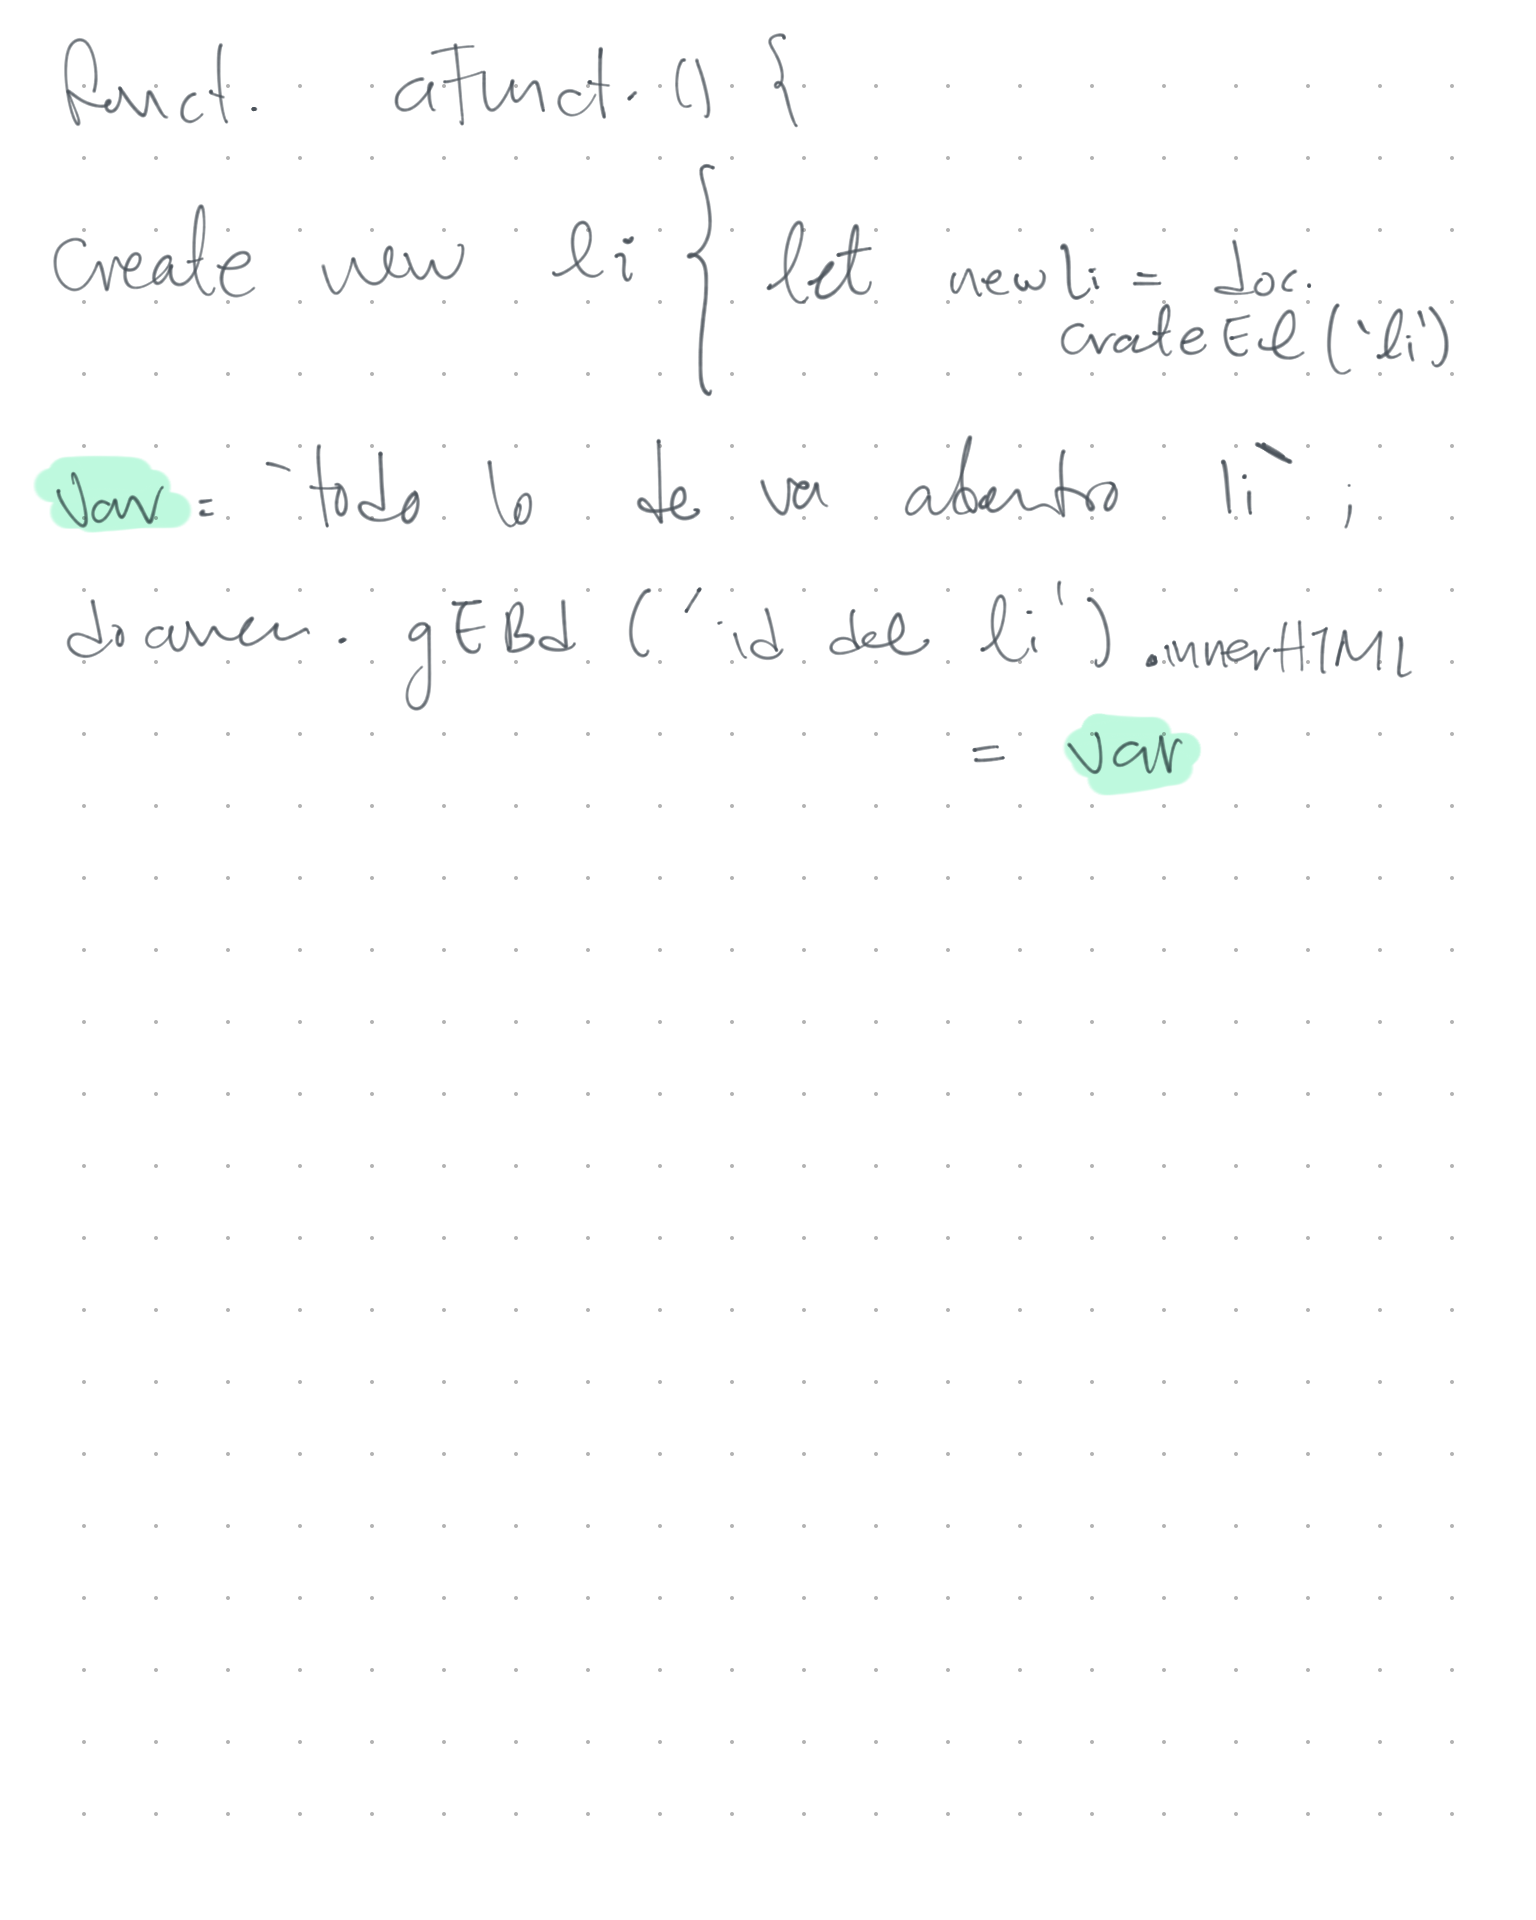 funct. aFunct. () {
create new li { let newli = doc.
crateEl ('li')
Var = `todo lo de va adentro li` ;
documen. gEBd ('id del li') .innerHTML
= Var